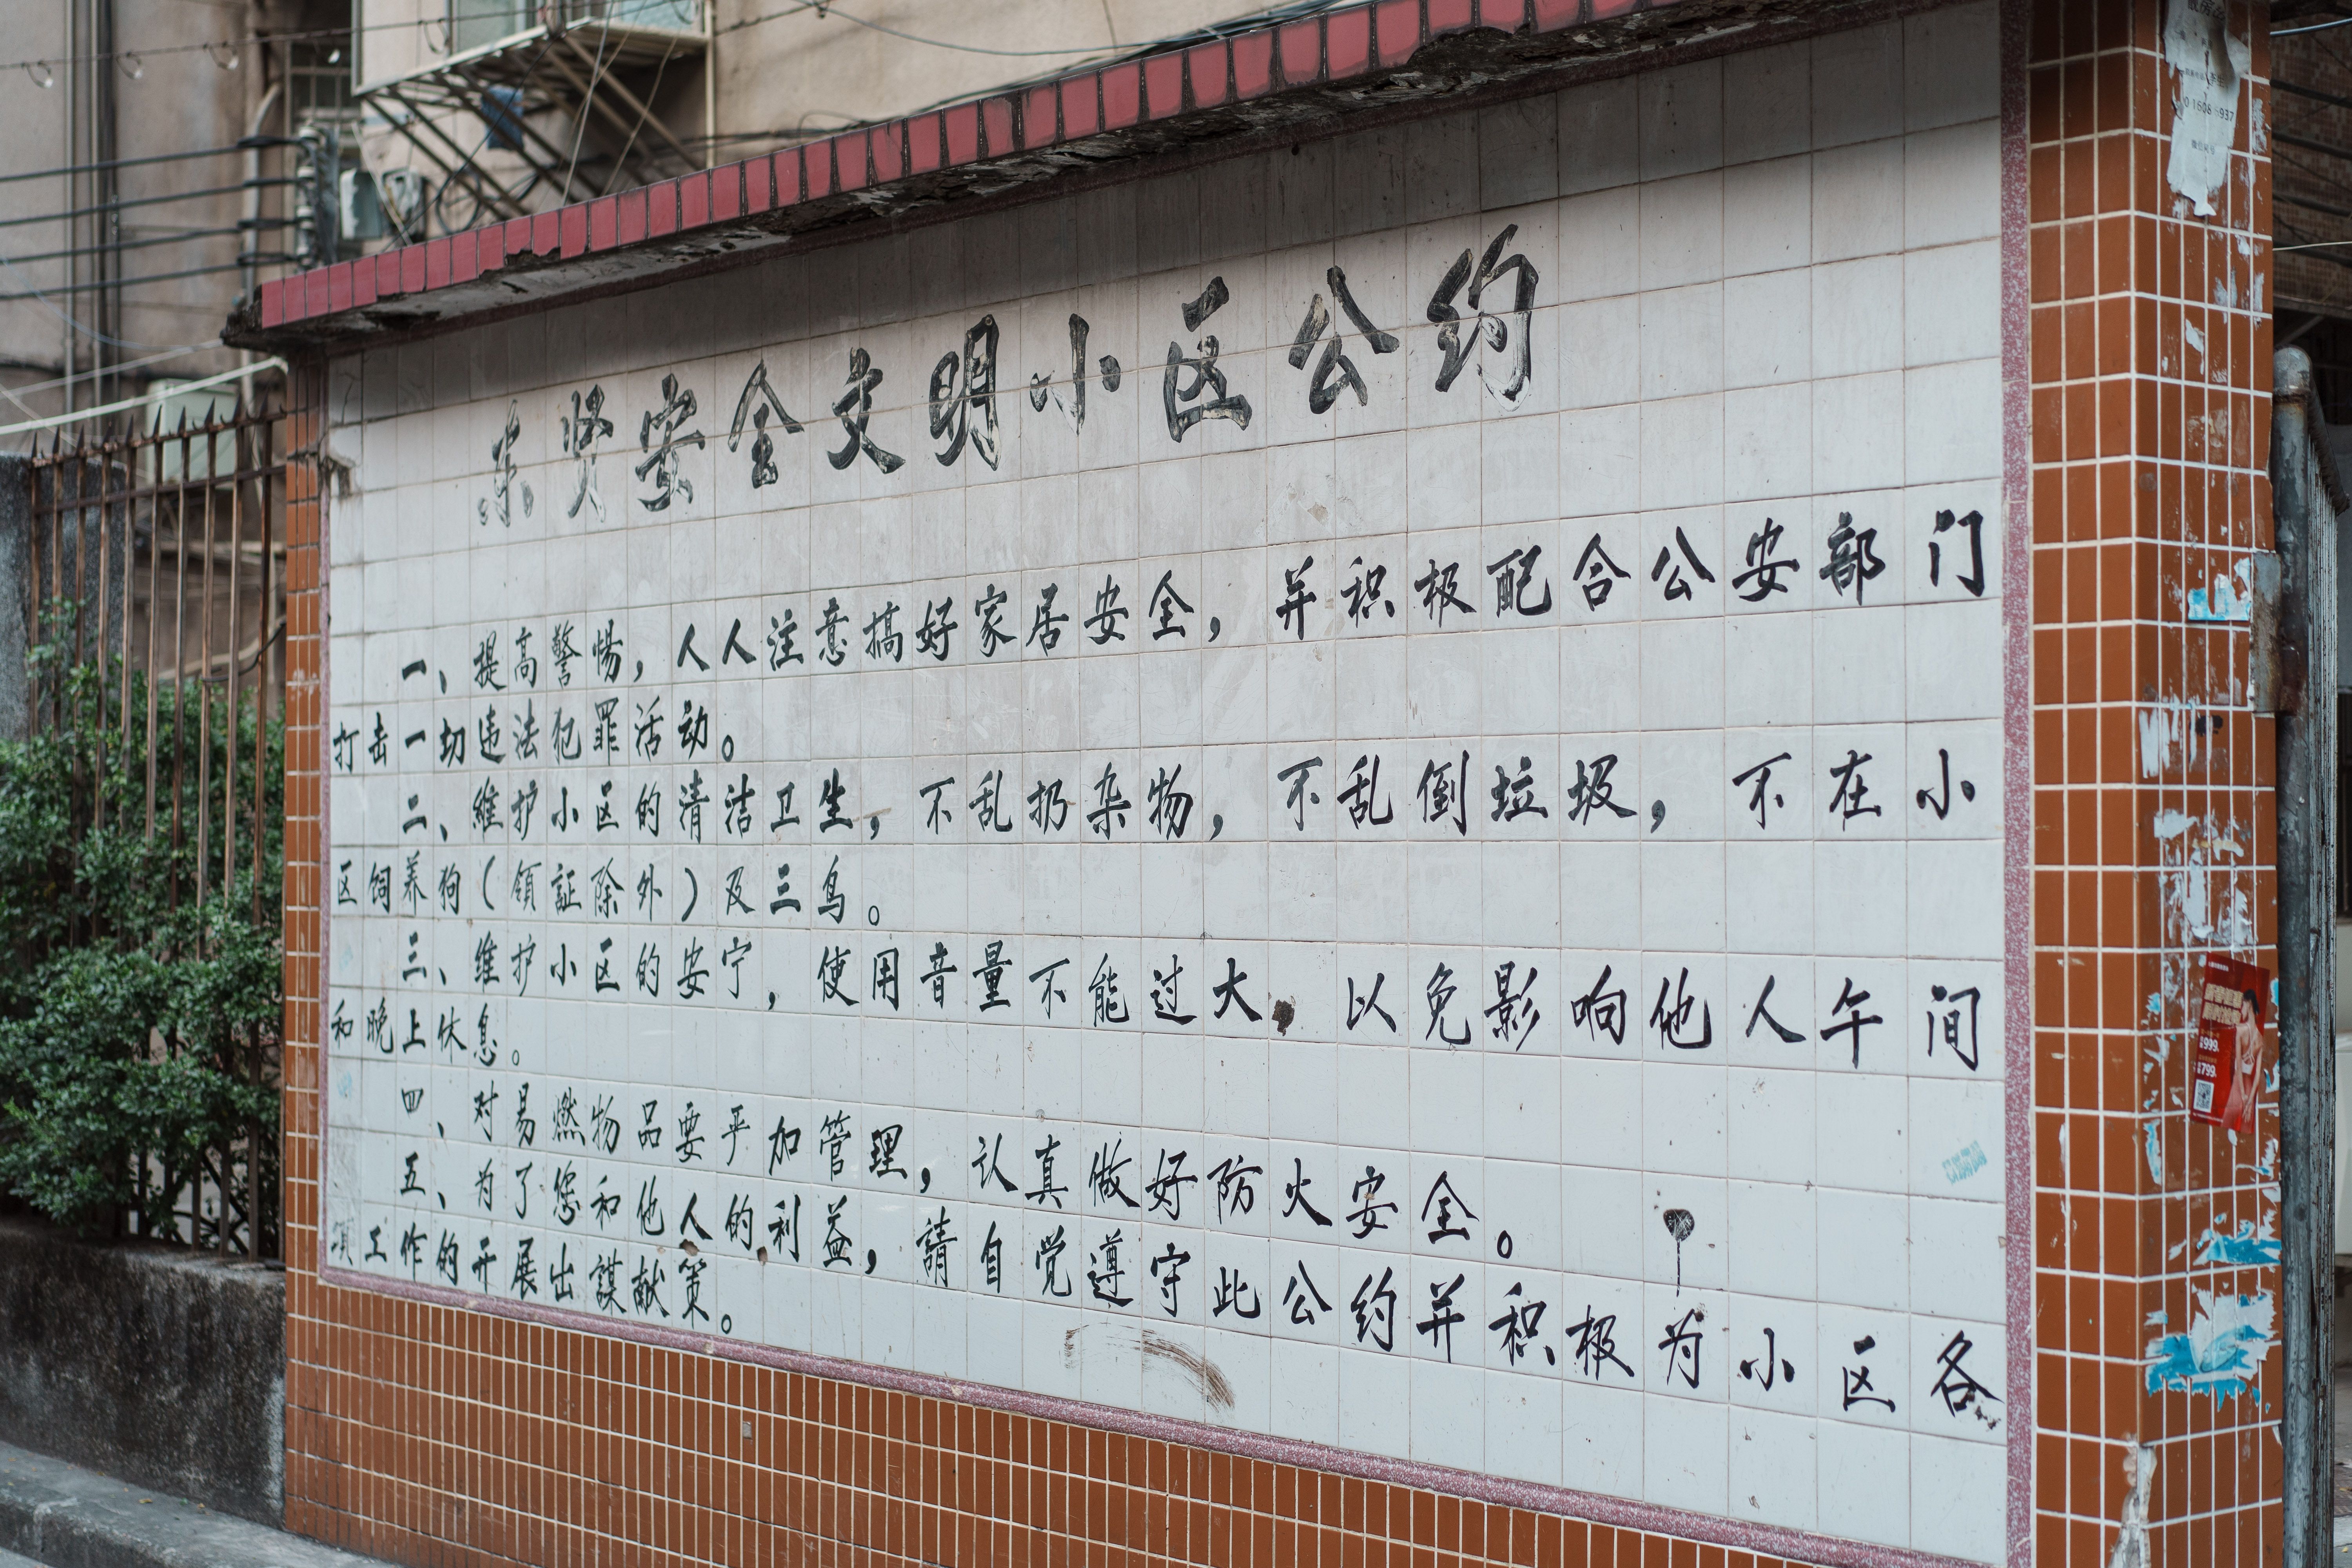 东贤安全文明小区公约
一、提高警惕，人人注意搞好家居安全，并积极配合公安部门
打击一切违法犯罪活动。
二、維护小区的清洁卫生，不乱扔杂物，不乱倒垃圾，不在小
区饲养狗（領証除外）及三鸟。
三、维护小区的安宁，使用音量不能过大，以免影响他人午间
和晚上休息。
四、对易燃物品要严加管理，认真做好防火安全。
五、为了您和他人的利益，請自觉遵守此公约并积极为小区各
项工作的开展出謀献策。
999
799